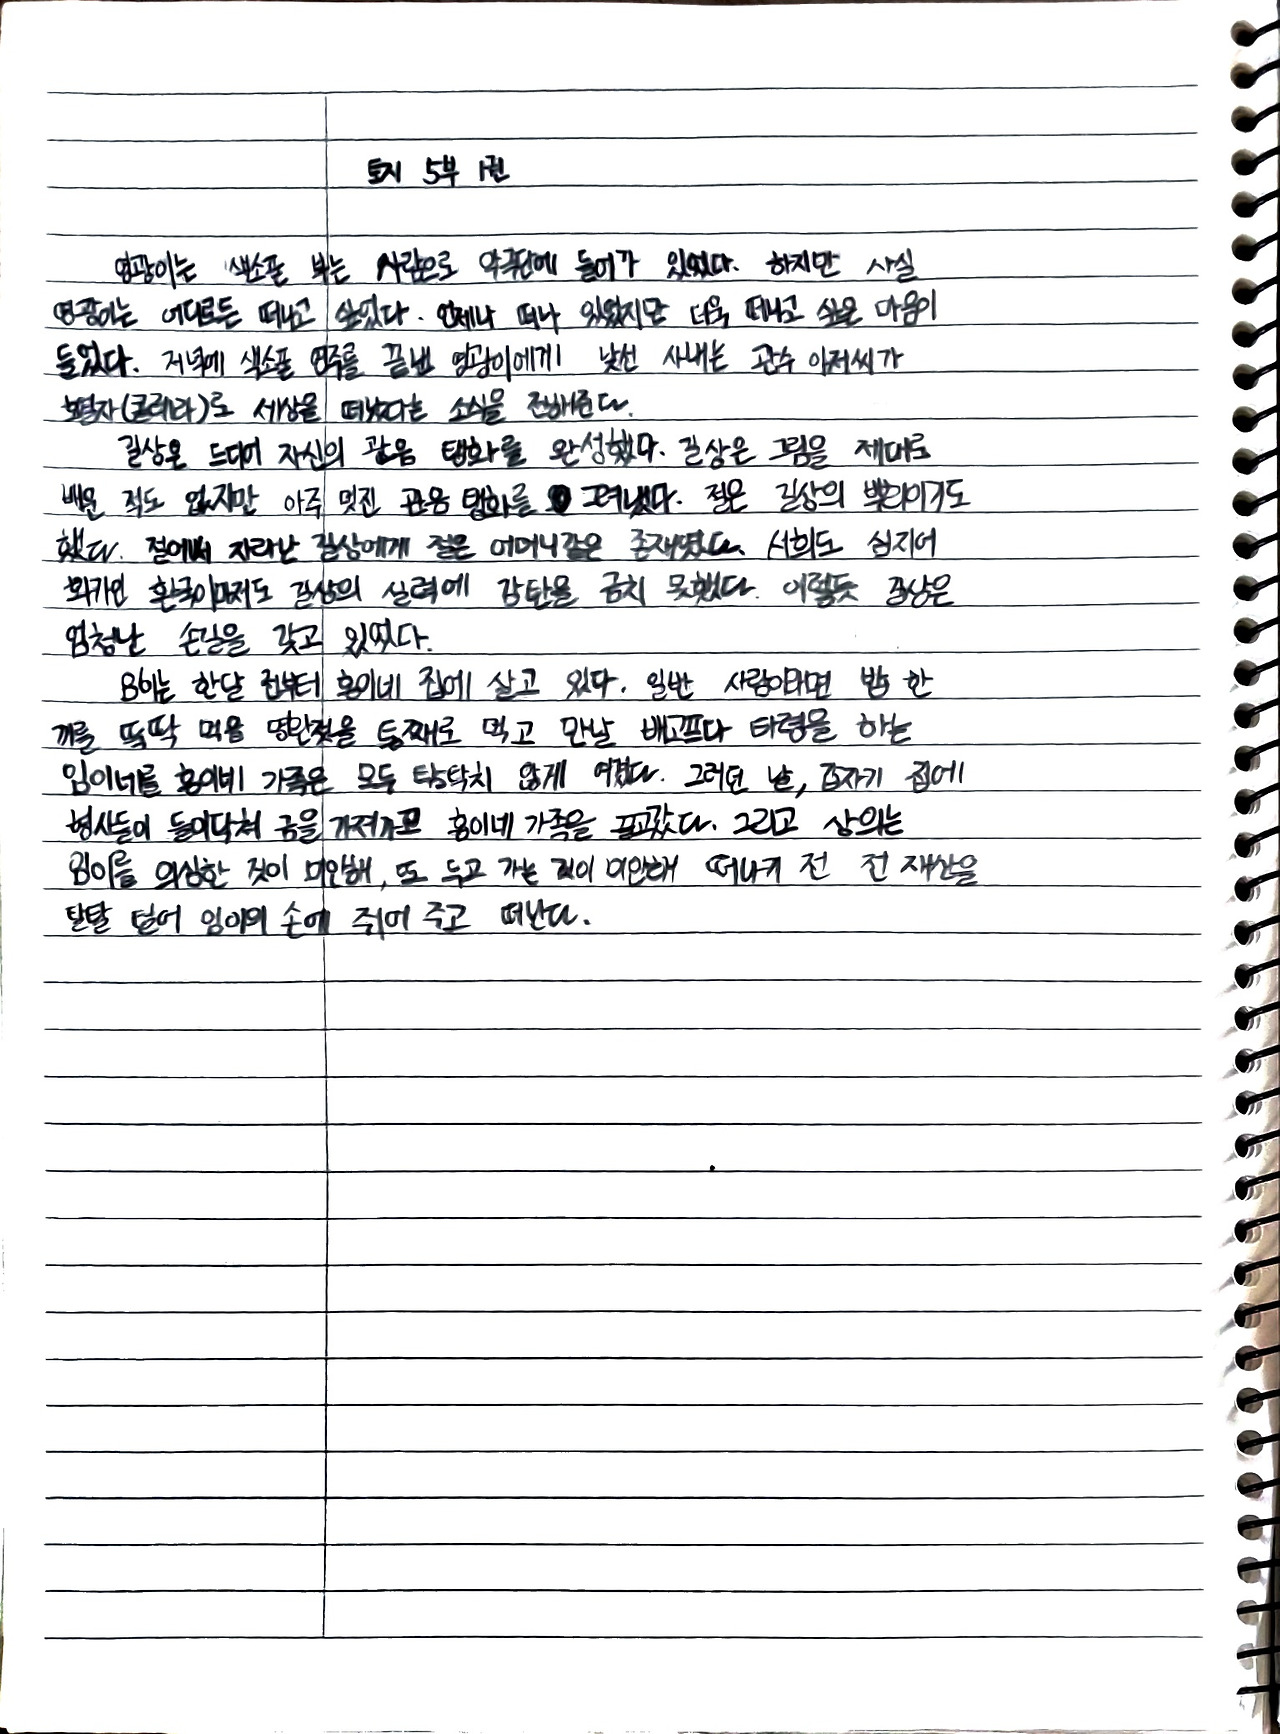 토지 5부 1권
영광이는 색소폰 부는 사람으로 악극단에 들어가 있었다. 하지만 사실
영광이는 어디로든 떠나고 싶었다. 언제나 떠나 있었지만 더욱 떠나고 싶은 마음이
들었다. 저녁에 색소폰 연주를 끝낸 영광이에게 낯선 사내는 관수 아저씨가
호열자(콜레라)로 세상을 떠났다는 소식을 전해준다.
길상은 드디어 자신의 관음 탱화를 완성했다. 길상은 그림을 제대로
배운 적도 없지만 아주 멋진 관음 탱화를 그려냈다. 절은 길상의 뿌리이기도
했다. 절에서 자라난 길상에게 절은 어머니같은 존재였다. 서희도 심지어
화가인 환국이마저도 길상의 실력에 감탄을 금치 못했다. 이렇듯 길상은
엄청난 손길을 갖고 있었다.
임이는 한달 전부터 홍이네 집에 살고 있다. 일반 사람이라면 밥 한
끼를 뚝딱 먹을 명란젓을 통째로 먹고 만날 배고프다 타령을 하는
임이네를 홍이네 가족은 모두 탐탁치 않게 여겼다. 그러던 날, 갑자기 집에
형사들이 들이닥쳐 금을 가져가고 홍이네 가족을 끌고갔다. 그리고 상의는
임이를 의심한 것이 미안해, 또 두고 가는 것이 미안해 떠나기 전 전 재산을
탈탈 털어 임이의 손에 쥐어 주고 떠난다.